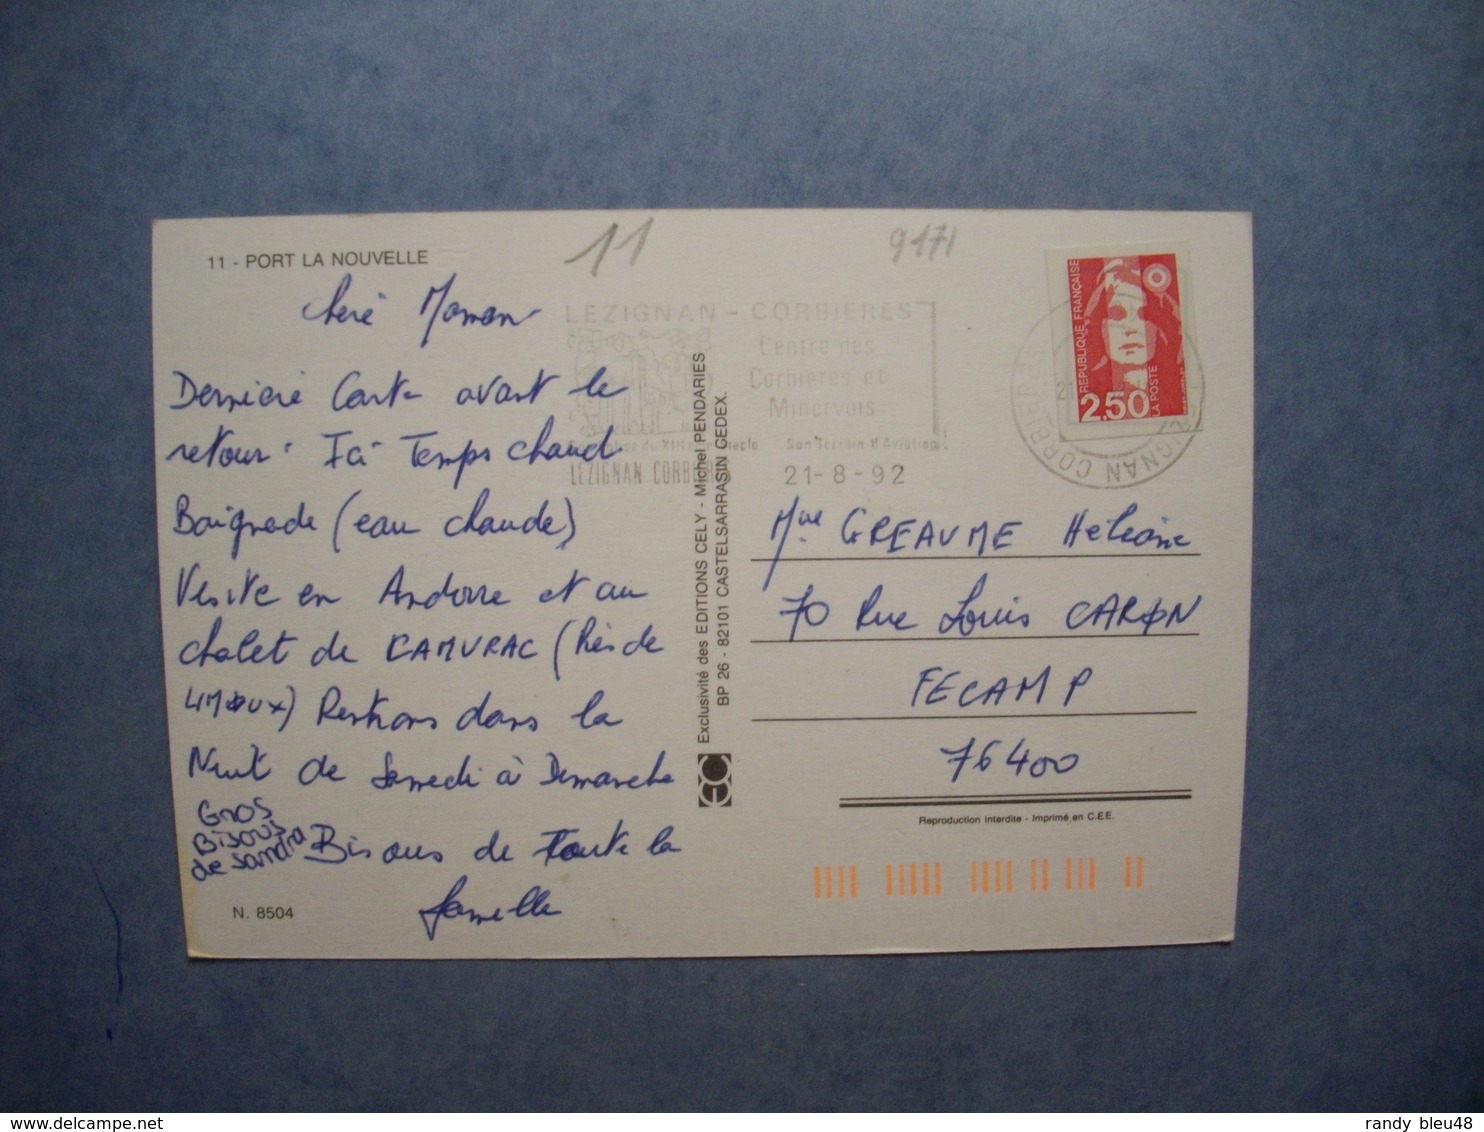 11 - PORT LA NOUVELLE
11
9171
Chère Maman
Dernière Carte avant le
retour. Ici Temps chaud
Baignade (eau chaude)
Visite en Andorre et au
chalet de CAMURAC (Près de
LIMOUX) Rentrons dans la
Nuit de Samedi à Dimanche
Gros
Bisous
de Sandra
Bisous de Toute la
famille
N. 8504
LEZIGNAN - CORBIERES
Centre des
Corbières et
Minervois
Son Terrain d'Aviation
LEZIGNAN CORBIERES
21-8-92
Exclusivité des EDITIONS CELY - Michel PENDARIES
BP 26 - 82101 CASTELSARRASIN CEDEX.
REPUBLIQUE FRANÇAISE
2,50
LA POSTE
Mme GREAUME
70 Rue Louis CARON
FECAMP
76400
Reproduction Interdite - Imprimé en C.E.E.
randy_bleu48